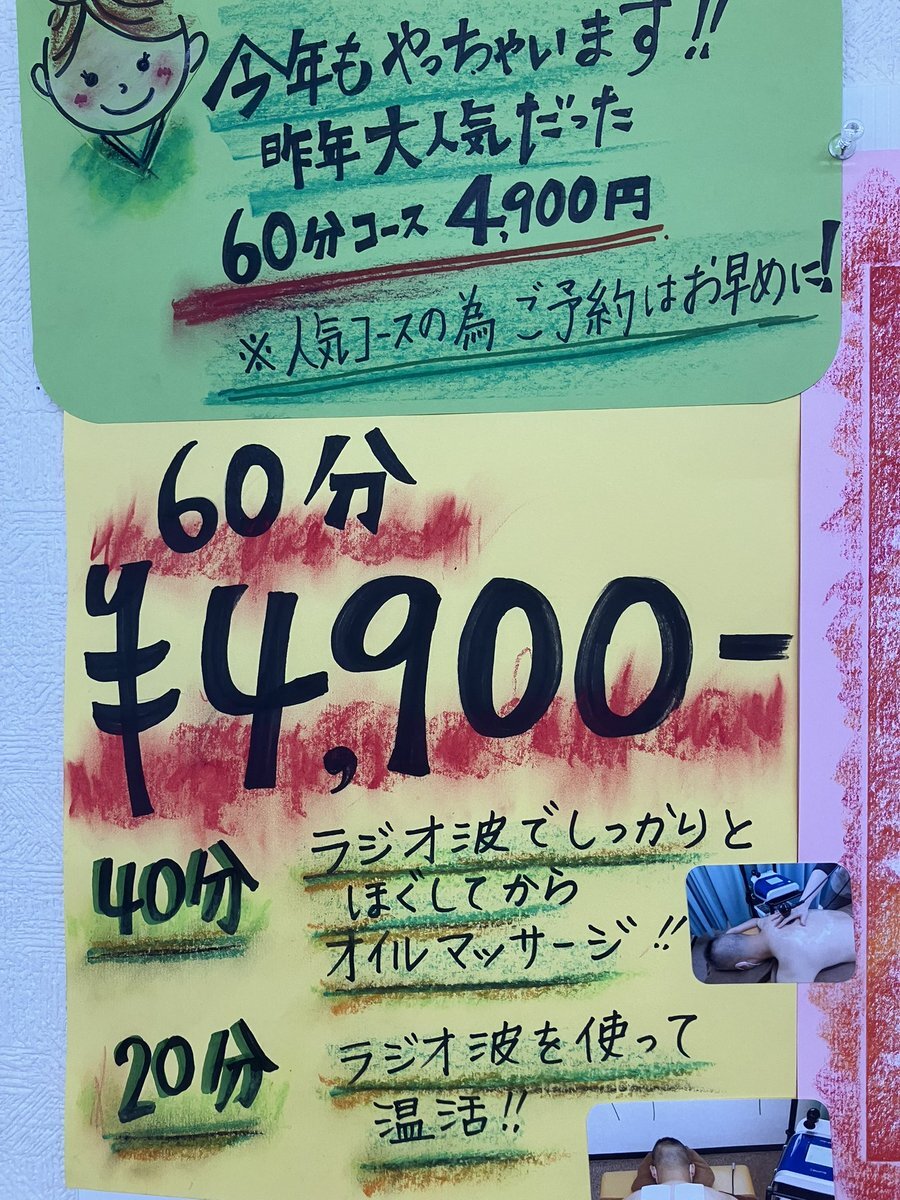 今年もやっちゃいます!!
昨年大人気だった
60分コース 4,900円
※人気コースの為 ご予約はお早めに!
60分
¥4,900-
40分
ラジオ波でしっかりと
ほぐしてから
オイルマッサージ!!
20分
ラジオ波を使って
温活!!